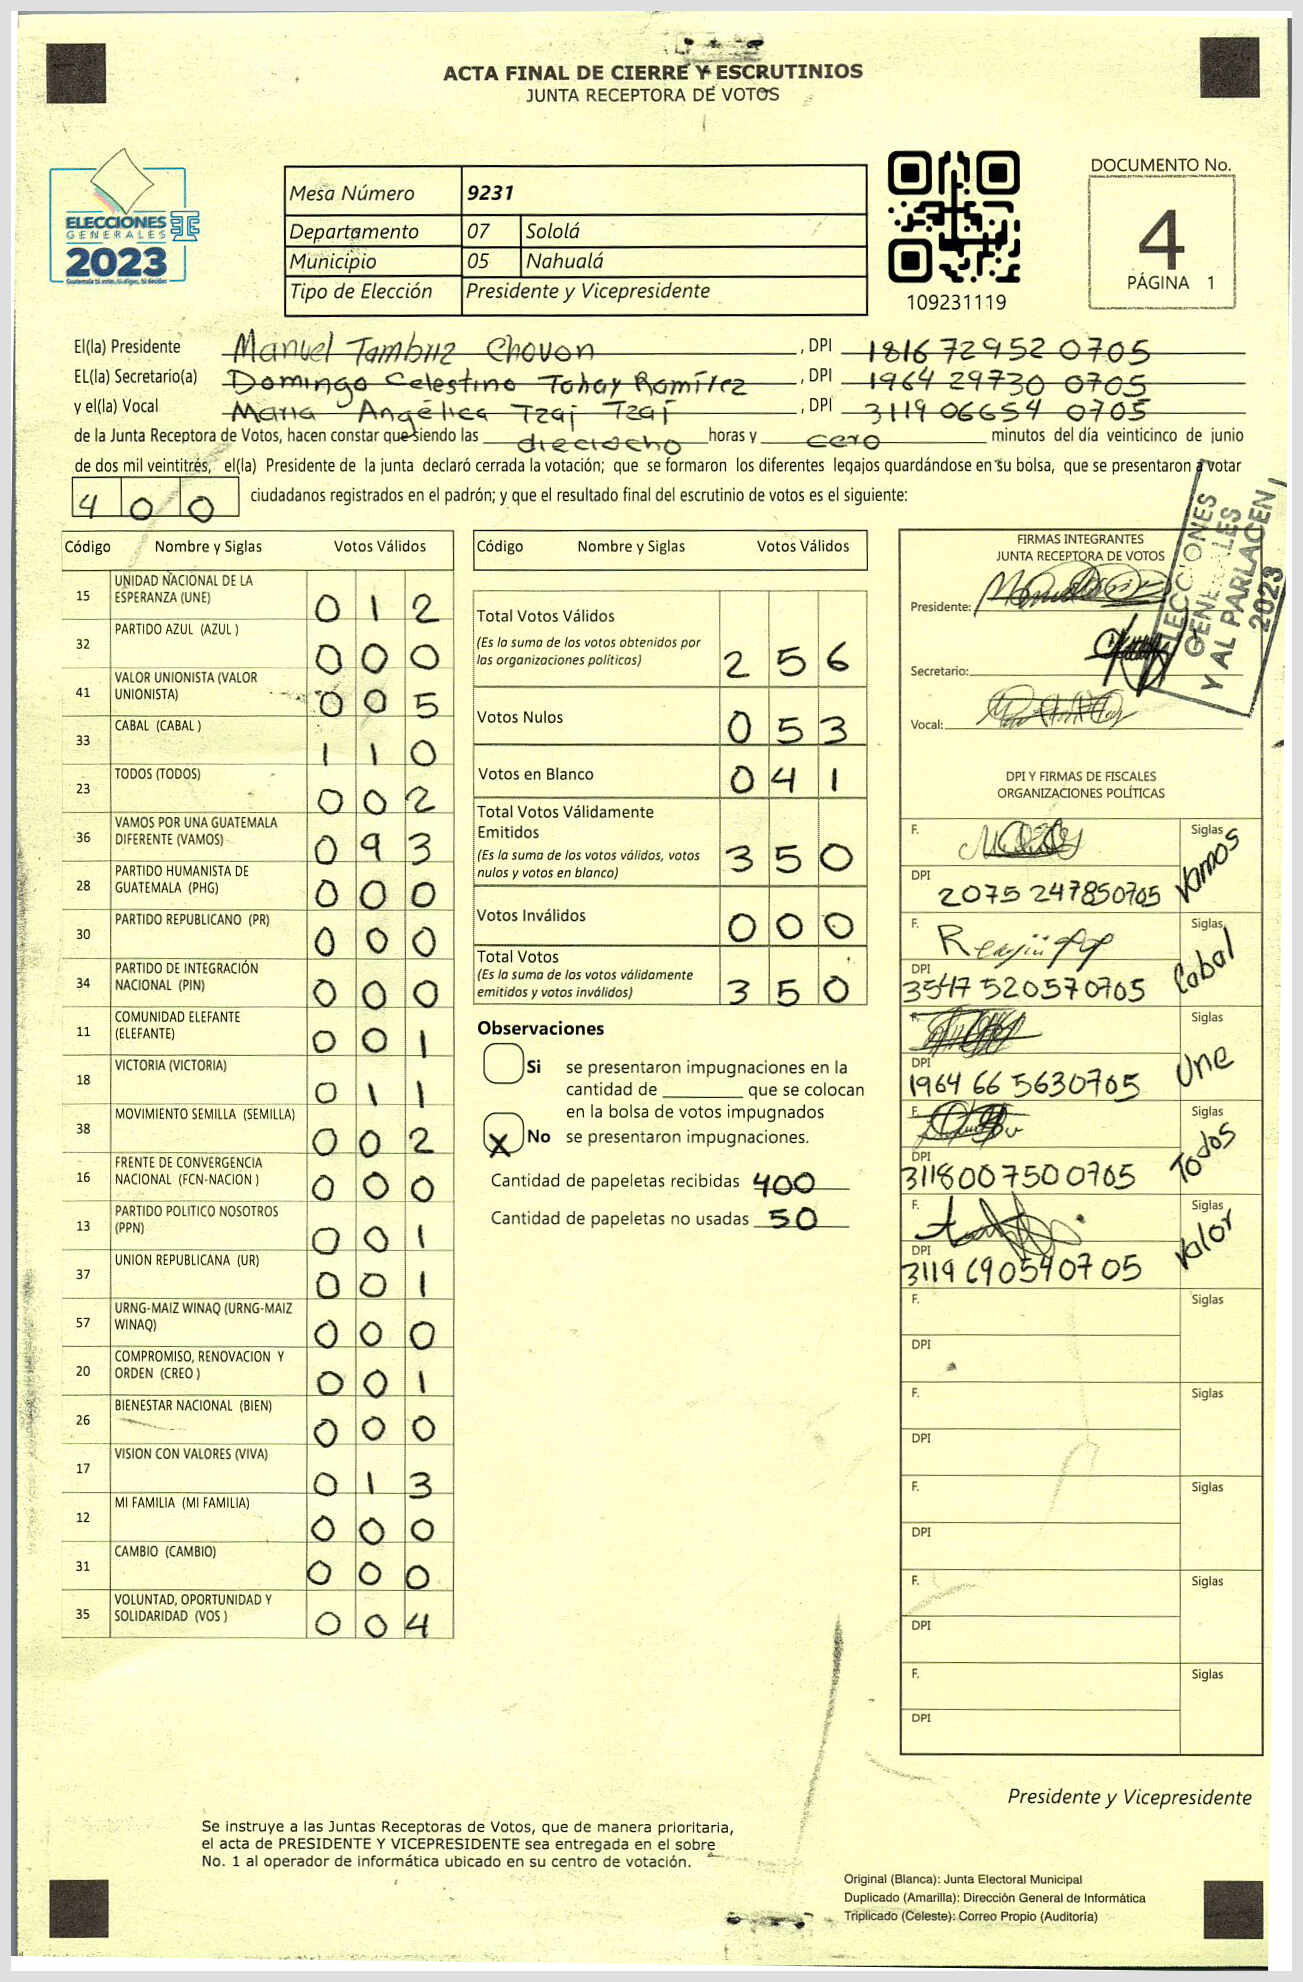 ACTA FINAL DE CIERRE Y ESCRUTINIOS
JUNTA RECEPTORA DE VOTOS
ELECCIONES
GENERALES
2023
Guatemala tú votas, tú eliges, tú decides
Mesa Número 9231
Departamento 07 Sololá
Municipio 05 Nahualá
Tipo de Elección Presidente y Vicepresidente
109231119
DOCUMENTO No.
4
PÁGINA 1
El(la) Presidente Manuel Tambriz Chovon, DPI 1816 72952 0705
EL(la) Secretario(a) Domingo Celestino Tohay Ramírez, DPI 1964 29730 0705
y el(la) Vocal Maria Angélica Tzaj Tzaj, DPI 3119 06654 0705
de la Junta Receptora de Votos, hacen constar que siendo las dieciocho horas y cero minutos del día veinticinco de junio
de dos mil veintitrés, el(la) Presidente de la junta declaró cerrada la votación; que se formaron los diferentes legajos quardándose en su bolsa, que se presentaron a votar
400 ciudadanos registrados en el padrón; y que el resultado final del escrutinio de votos es el siguiente:
Código Nombre y Siglas Votos Válidos
15 UNIDAD NACIONAL DE LA ESPERANZA (UNE) 012
32 PARTIDO AZUL (AZUL ) 000
41 VALOR UNIONISTA (VALOR UNIONISTA) 005
33 CABAL (CABAL ) 110
23 TODOS (TODOS) 002
36 VAMOS POR UNA GUATEMALA DIFERENTE (VAMOS) 093
28 PARTIDO HUMANISTA DE GUATEMALA (PHG) 000
30 PARTIDO REPUBLICANO (PR) 000
34 PARTIDO DE INTEGRACIÓN NACIONAL (PIN) 000
11 COMUNIDAD ELEFANTE (ELEFANTE) 001
18 VICTORIA (VICTORIA) 011
38 MOVIMIENTO SEMILLA (SEMILLA) 002
16 FRENTE DE CONVERGENCIA NACIONAL (FCN-NACION ) 000
13 PARTIDO POLITICO NOSOTROS (PPN) 001
37 UNION REPUBLICANA (UR) 001
57 URNG-MAIZ WINAQ (URNG-MAIZ WINAQ) 000
20 COMPROMISO, RENOVACION Y ORDEN (CREO ) 001
26 BIENESTAR NACIONAL (BIEN) 000
17 VISION CON VALORES (VIVA) 013
12 MI FAMILIA (MI FAMILIA) 000
31 CAMBIO (CAMBIO) 000
35 VOLUNTAD, OPORTUNIDAD Y SOLIDARIDAD (VOS ) 004
Código Nombre y Siglas Votos Válidos
Total Votos Válidos
(Es la suma de los votos obtenidos por
las organizaciones políticas) 256
Votos Nulos 053
Votos en Blanco 041
Total Votos Válidamente
Emitidos
(Es la suma de los votos válidos, votos
nulos y votos en blanco) 350
Votos Inválidos 000
Total Votos
(Es la suma de los votos válidamente
emitidos y votos inválidos) 350
Observaciones
Si se presentaron impugnaciones en la
cantidad de ________ que se colocan
en la bolsa de votos impugnados
X No se presentaron impugnaciones.
Cantidad de papeletas recibidas 400
Cantidad de papeletas no usadas 50
FIRMAS INTEGRANTES
JUNTA RECEPTORA DE VOTOS
Presidente:
Secretario:
Vocal:
ELECCIONES
GENERALES
Y AL PARLACEN
2023
DPI Y FIRMAS DE FISCALES
ORGANIZACIONES POLÍTICAS
F. Siglas Vamos
DPI 2075 247850705
F. Siglas Cabal
DPI 3547 520570705
F. Siglas Une
DPI 1964 66 5630705
F. Siglas Todos
DPI 3118007500705
F. Siglas Valor
DPI 3119 690540705
F. Siglas
DPI
F. Siglas
DPI
F. Siglas
DPI
F. Siglas
DPI
F. Siglas
DPI
Presidente y Vicepresidente
Se instruye a las Juntas Receptoras de Votos, que de manera prioritaria,
el acta de PRESIDENTE Y VICEPRESIDENTE sea entregada en el sobre
No. 1 al operador de informática ubicado en su centro de votación.
Original (Blanca): Junta Electoral Municipal
Duplicado (Amarilla): Dirección General de Informática
Triplicado (Celeste): Correo Propio (Auditoría)